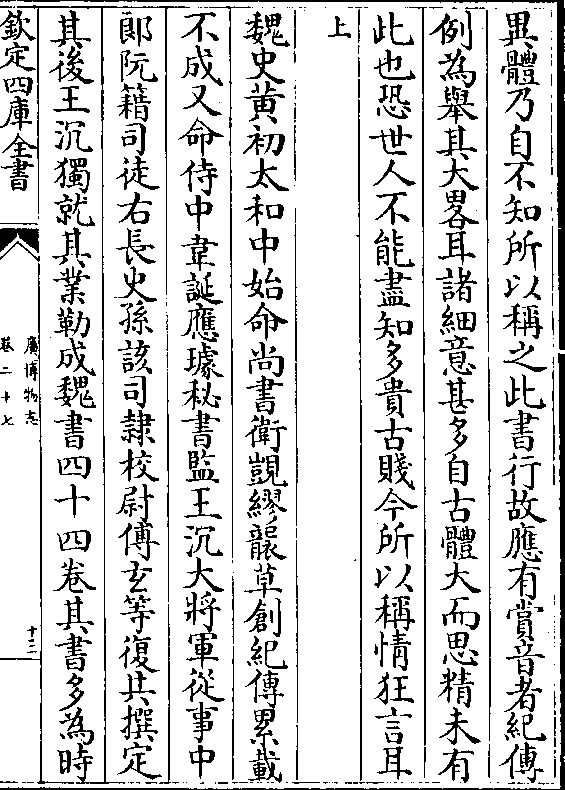 異體乃自不知所以稱之此書行故應有賞音者紀傳
例為舉其大畧耳諸細意甚多自古體大而思精未有
此也恐世人不能盡知多貴古賤今所以稱情狂言耳
上
魏史黄初太和中始命尚書衛覬繆襲草創紀傳累載
不成又命侍中韋誕應璩秘書監王沉大將軍從事中
郎阮籍司徒右長史孫該司隸校尉傅玄等復共撰定
其後王沉獨就其業勒成魏書四十四卷其書多為時
欽定四庫全書
廣博物志
卷二十七
十三